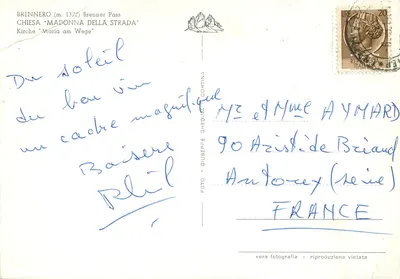 BRENNERO (m 1372) Brenner Pass
CHIESA "MADONNA DELLA STRADA"
Kirche "Maria am Wege"
Du soleil
du bon vin
un cadre magnifique
Baisers
Phil
FOTO - GIUSEPPE GHEDINA - CORTINA
Mr et Mme AYMARD
90 Aristide Briand
Antony (seine)
FRANCE
vera fotografia - riproduzione vietata